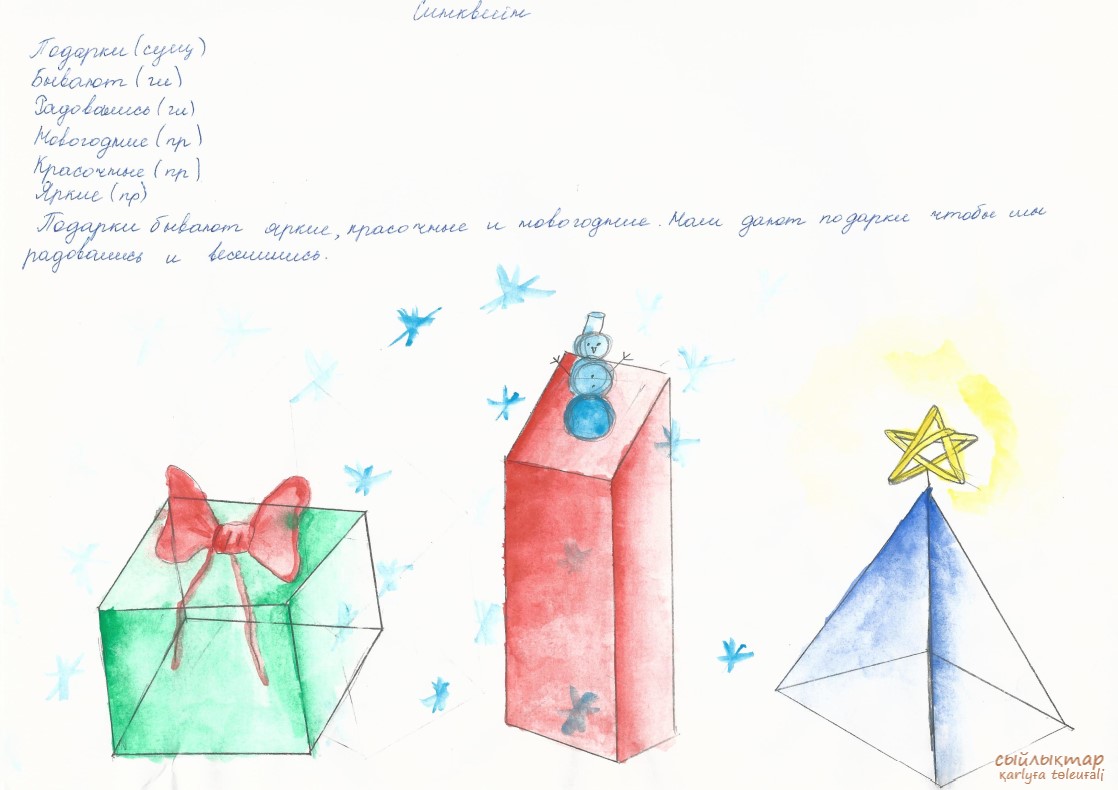 Синквейн
Подарки (сущ)
Бывают (гл)
Радовались (гл)
Новогодние (пр)
Красочные (пр)
Яркие (пр)
Подарки бывают яркие, красочные и новогодние. Нам дают подарки чтобы мы
радовались и веселились.
сыйлықтар
qarlyƣa tөleuƣali